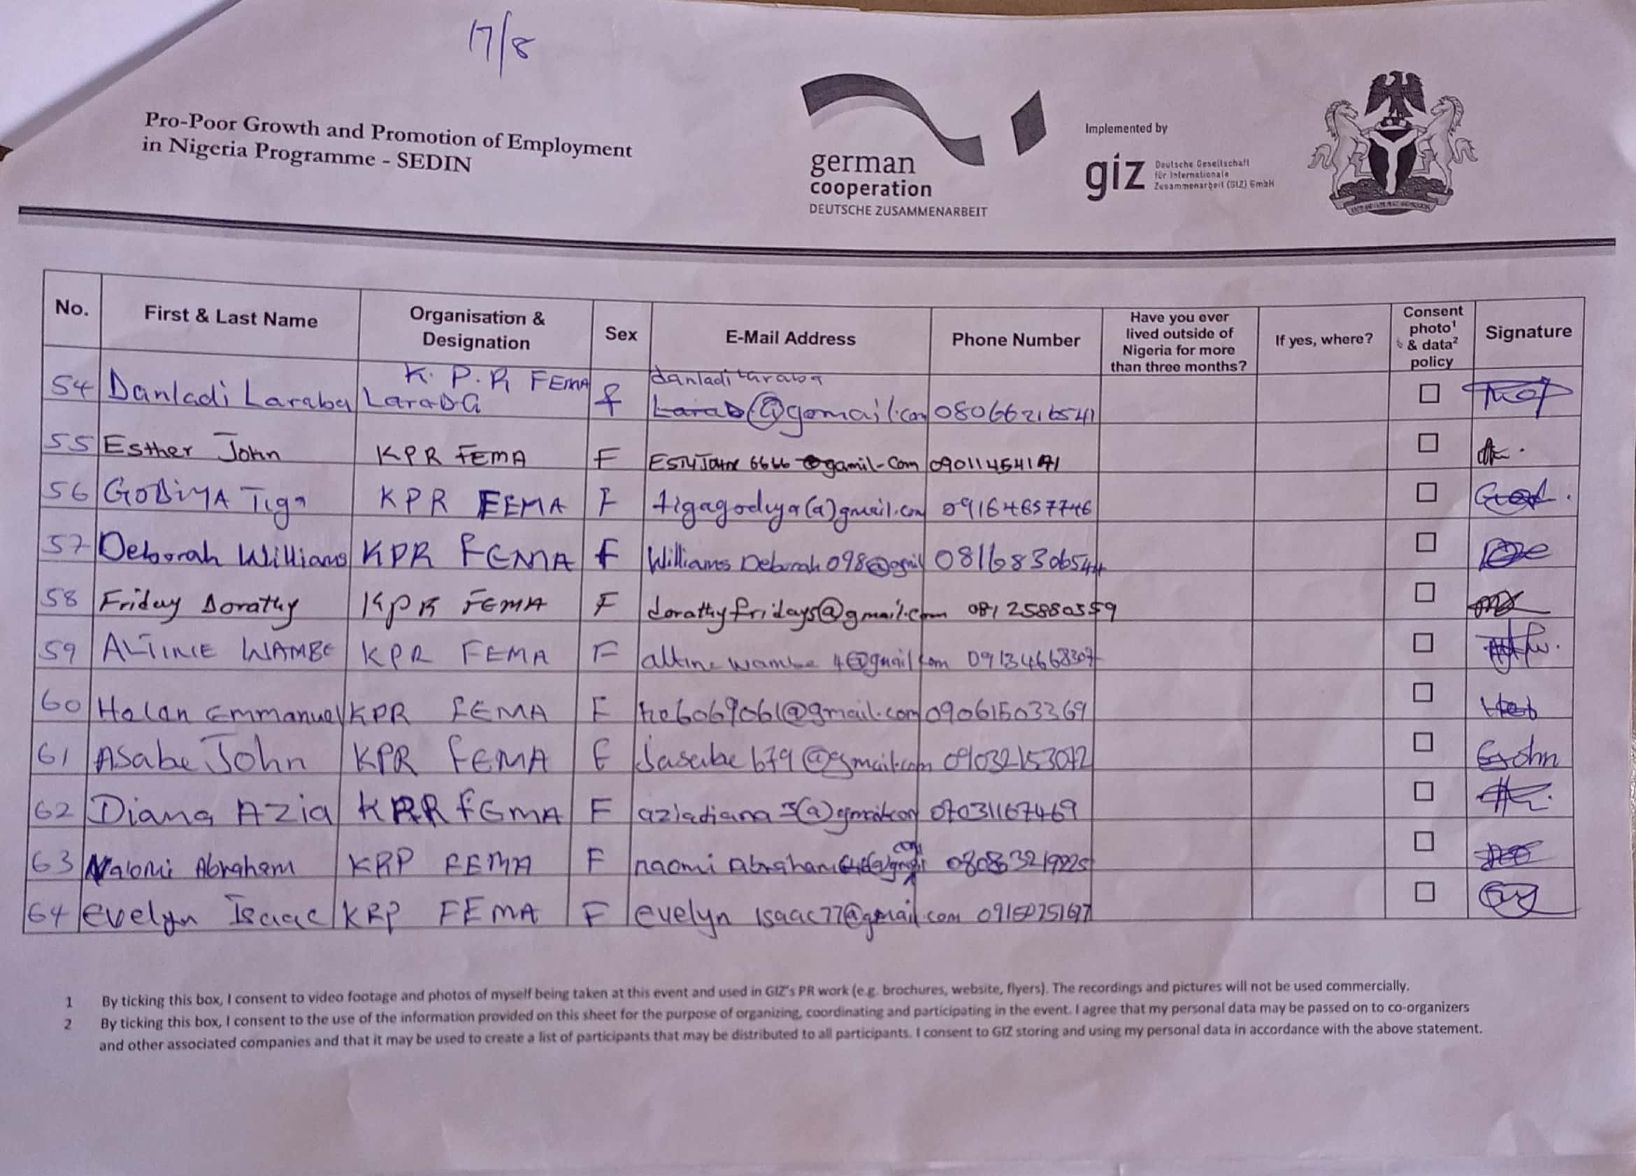 17/8
Pro-Poor Growth and Promotion of Employment
in Nigeria Programme - SEDIN
german
cooperation
DEUTSCHE ZUSAMMENARBEIT
Implemented by
giz Deutsche Gesellschaft
für Internationale
Zusammenarbeit (GIZ) GmbH
No. First & Last Name Organisation & Designation Sex E-Mail Address Phone Number Have you ever lived outside of Nigeria for more than three months? If yes, where? Consent photo¹ & data² policy Signature
54 Danladi Laraba K. P. R FEMA LaraDa f danladi @gomail.com 08066216541
55 Esther John KPR FEMA F 6666 @gamil-Com
56 GODIYA Tiga KPR FEMA F tigagodiya(a)gmail.com 09164657746
57 Deborah Willians KPR FEMA f Williams Deborah 098@gmil
58 Friday Dorathy KPR FEMA F dorathyfridays@gmail.com 08125880559
59 ALTINE WAMBE KPR FEMA F altine wambe 4@gmail.com 09134668307
60 Halan Emmanuel KPR FEMA F he6069061@gmail.com 09061503369
61 Asabe John KPR FEMA F Jasabe 679 @gmail.com
62 Diana Azia KPR FEMA F aziadiana 3(a)gmail.com 07031167469
63 Naomi Abraham KRP FEMA F naomi Abraham
64 Evelyn Isaac KRP FEMA F evelyn Isaac77@gmail.com
1 By ticking this box, I consent to video footage and photos of myself being taken at this event and used in GIZ's PR work (e.g. brochures, website, flyers). The recordings and pictures will not be used commercially.
2 By ticking this box, I consent to the use of the information provided on this sheet for the purpose of organizing, coordinating and participating in the event. I agree that my personal data may be passed on to co-organizers
and other associated companies and that it may be used to create a list of participants that may be distributed to all participants. I consent to GIZ storing and using my personal data in accordance with the above statement.